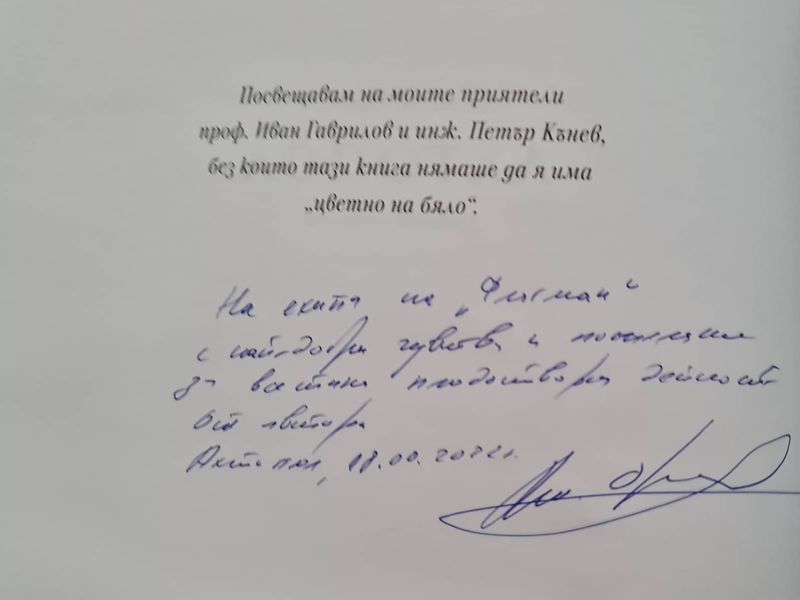 Посвещавам на моите приятели
проф. Иван Гаврилов и инж. Петър Кънев,
без които тази книга нямаше да я има
„цветно на бяло“.
На екипа на „Фисман“
с най-добри чувства и пожелания
за все така плодотворна дейност
От автора
Ахтопол,